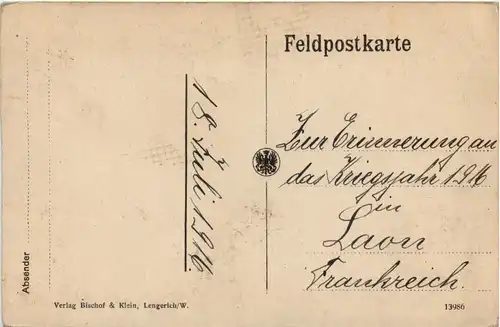 Feldpostkarte
Zur Erinnerung an
das Kriegsjahr 1916
in
Laon
Frankreich.
18. Juli 1916
Absender
Verlag Bischof & Klein, Lengerich/W.
13986